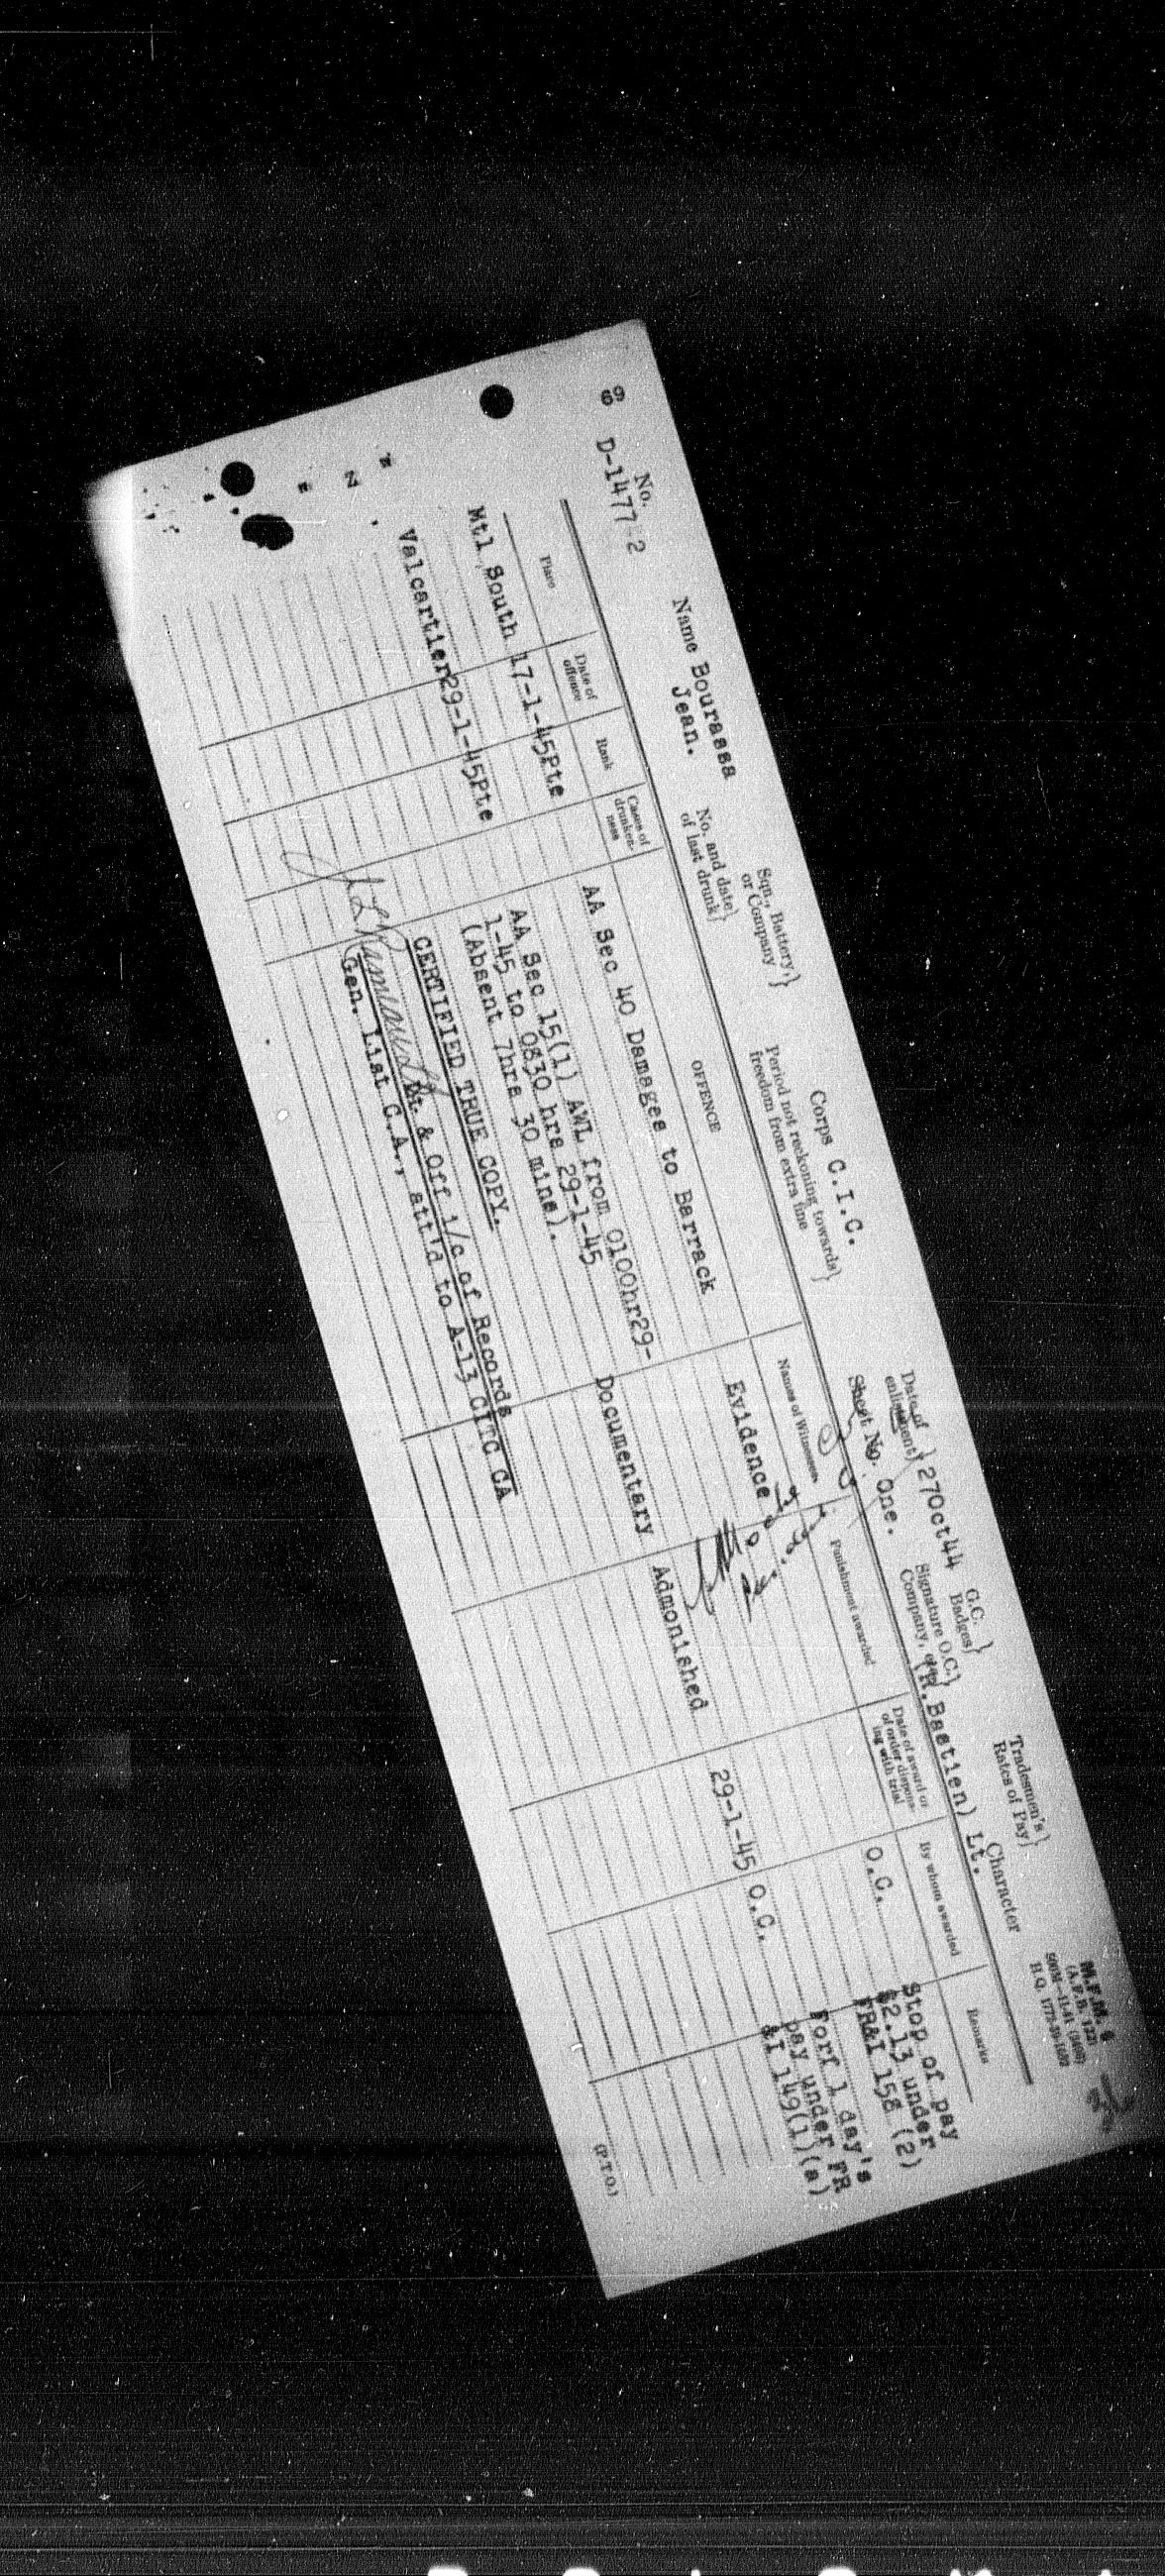 69
M.F.M. 6
(A.F.B. 122)
H.Q. 1772-39-1692
No.
D-1477 2
Name Bourassa
Jean.
Sqn., Battery,
or Company
Corps C.I.C.
Date of
enlistment 27Oct44
G.C.
Badges
Tradesmen's
Rates of Pay
No. and date
of last drunk
Period not reckoning towards
freedom from extra fine
Sheet No. One.
Signature O.C.
Company, etc. (R.Bastien) Lt.
Character
Place
Date of
offence
Rank
Cases of
drunken-
ness
OFFENCE
Names of Witnesses
Punishment awarded
Date of award or
of order dispens-
ing with trial
By whom awarded
Remarks
Mtl South 17-1-45Pte AA Sec 40 Damages to Barrack Evidence O.C. Stop of pay
$2.13 under
FR&I 158 (2)
Valcartier29-1-45Pte AA Sec 15(1) AWL from 0100hr29- Documentary Admonished 29-1-45 O.C. Forf 1 day's
1-45 to 0830 hrs 29-1-45 pay under FR
(Absent 7hrs 30 mins). &I 149(1)(a)
CERTIFIED TRUE COPY.
Lt. & Off i/c of Records
Gen. List C.A., att'd to A-13 CITC CA
(P.T.O.)